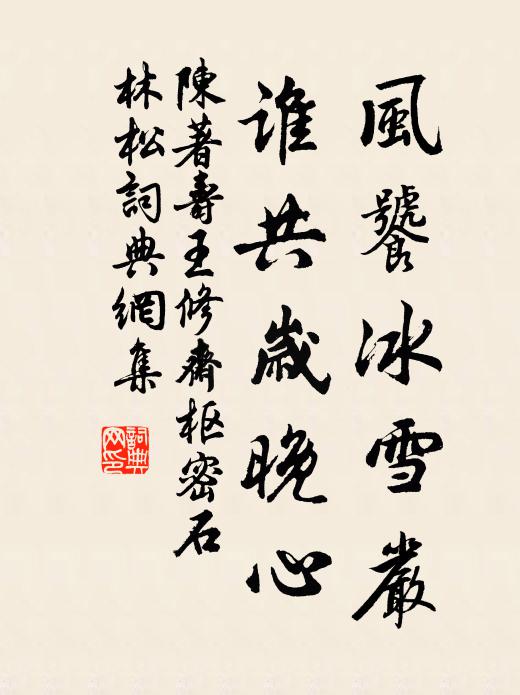 風饕冰雪嚴
誰共歲晚心
陳著壽王修齋枢密石
林松詞典網集
詞典網印